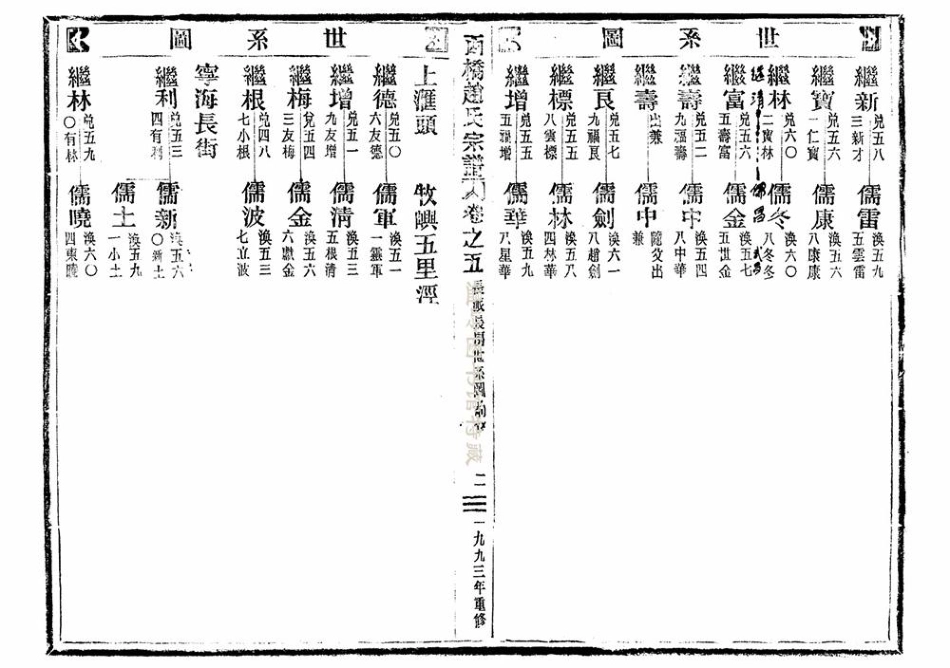 世系圖
繼新 兌五八三新才 儒雷 渙五九五雲雷
繼寶 兌五六一仁寶 儒康 渙五六八康康
繼林 兌六〇二寶林 儒冬 渙六〇八冬冬
繼清 儒昌
繼富 兌五六五壽富 儒金 渙五七五世金
繼壽 兌五二九福壽 儒中 渙五四八中華
繼壽 出兼 儒中 隨父出兼
繼良 兌五七九福良 儒劍 渙六一八趙劍
繼標 兌五五八雲標 儒林 渙五八四林華
繼增 兌五五五福增 儒華 渙五九八星華
西橋趙氏宗譜 卷之五 世系圖 二 一九九三年重修
世系圖
上滙頭 牧嶼五里涇
繼德 兌五〇六友德 儒軍 渙五一一靈軍
繼增 兌五一九友增 儒清 渙五三五根清
繼梅 兌五四三友梅 儒金 渙五六六獻金
繼根 兌四八七小根 儒波 渙五三七立波
寧海長街
繼利 兌五三四有利 儒新 渙五六〇新土
儒土 渙五九一小土
繼林 兌五九〇有林 儒曉 渙六〇四東曉